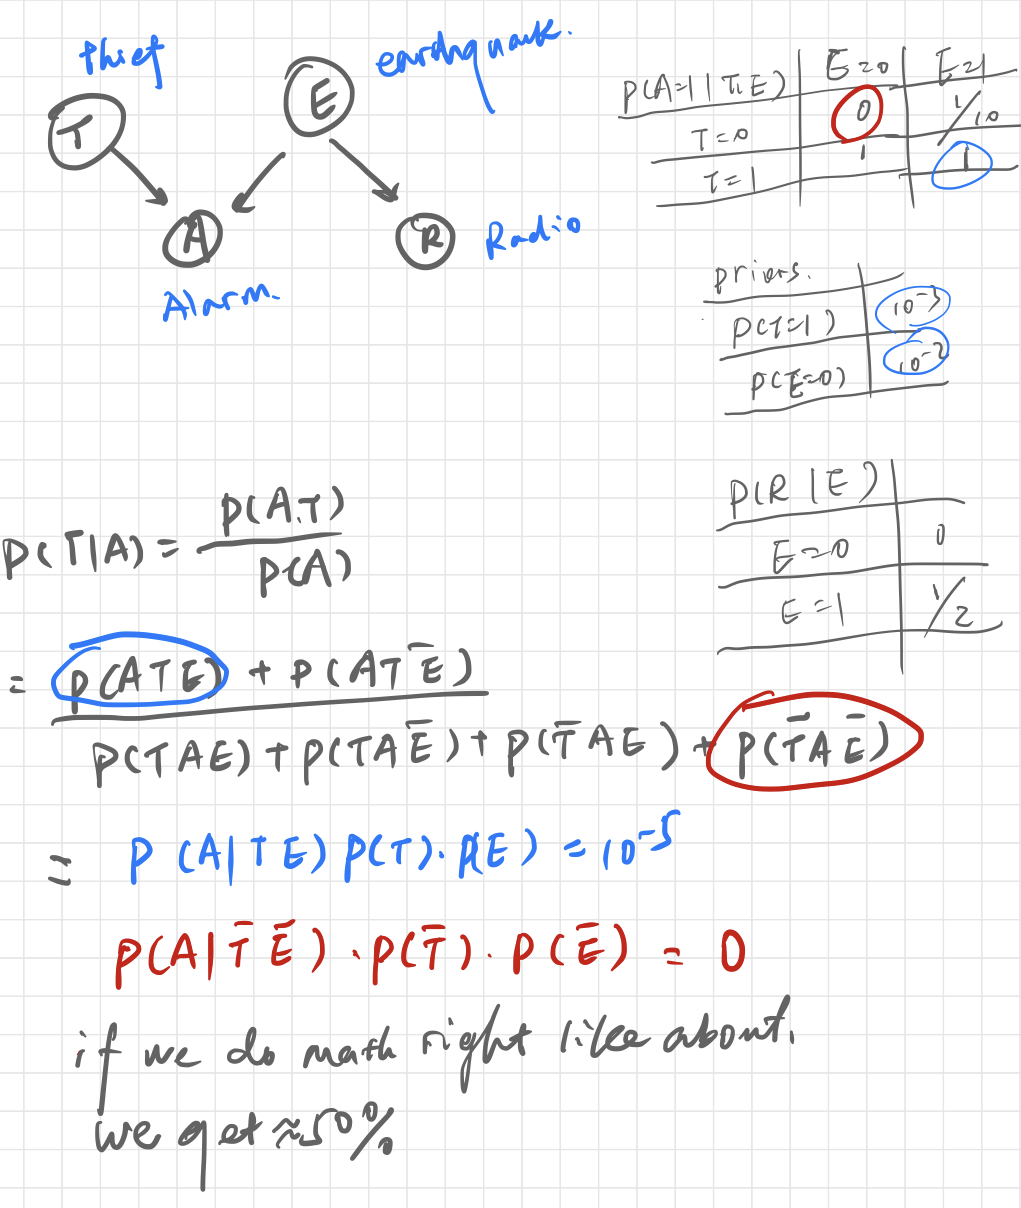 thief
earthquake.
T
E
A
R
Alarm.
Radio
P(A=1 | T,E) E=0 E=1
T=0 0 1/10
T=1 1 1
priors.
P(T=1) 10⁻³
P(E=0) 10⁻²
P(R | E)
E=0 0
E=1 1/2
P(T|A) = P(A,T)
P(A)
= P(ATE) + P(ATE̅)
P(TAE) + P(TAE̅) + P(T̅AE) + P(T̅AE̅)
= P(A|TE) P(T). P(E) = 10⁻⁵
P(A|T̅E̅) . P(T̅) . P(E̅) = 0
if we do math right like about.
we get ≈50%